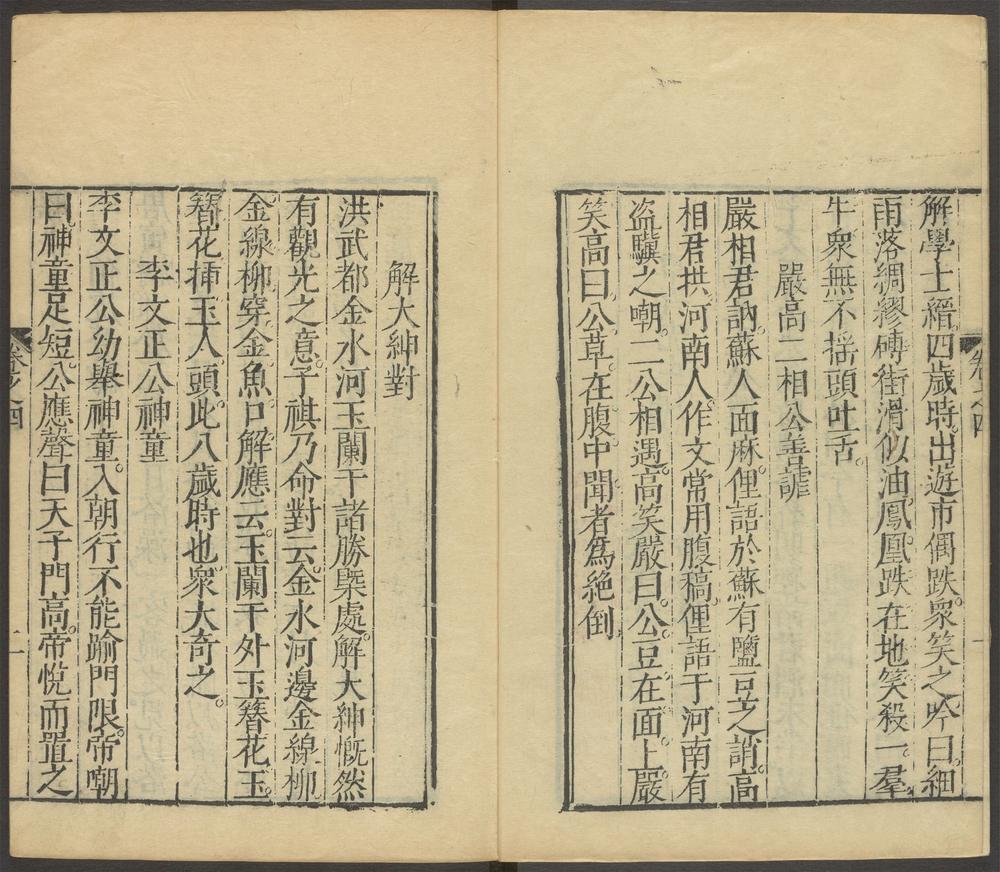 解學士縉四歲時。出遊市偶跌。衆笑之。吟曰。細
雨落綢繆。磚街滑似油。鳳凰跌在地。笑殺一羣
牛。衆無不搖頭吐舌。
嚴高二相公善謔
嚴相君訥。蘇人面麻。俚語於蘇有鹽豆之誚。高
相君拱。河南人。作文常用腹稿。俚語于河南有
盜驥之嘲。二公相遇。高笑嚴曰。公豆在面上。嚴
笑高曰。公草在腹中。聞者爲絕倒。
卷之四
解大紳對
洪武都金水河玉闌干諸勝槩處。解大紳慨然
有觀光之意。子祺乃命對云。金水河邊金線柳。
金線柳穿金魚口。解應云。玉闌干外玉簪花。玉
簪花揷玉人頭。此八歲時也。衆大奇之。
李文正公神童
李文正公幼舉神童。入朝行不能踰門限。帝嘲
曰。神童足短。公應聲曰。天子門高。帝悅而置之
卷之四
二